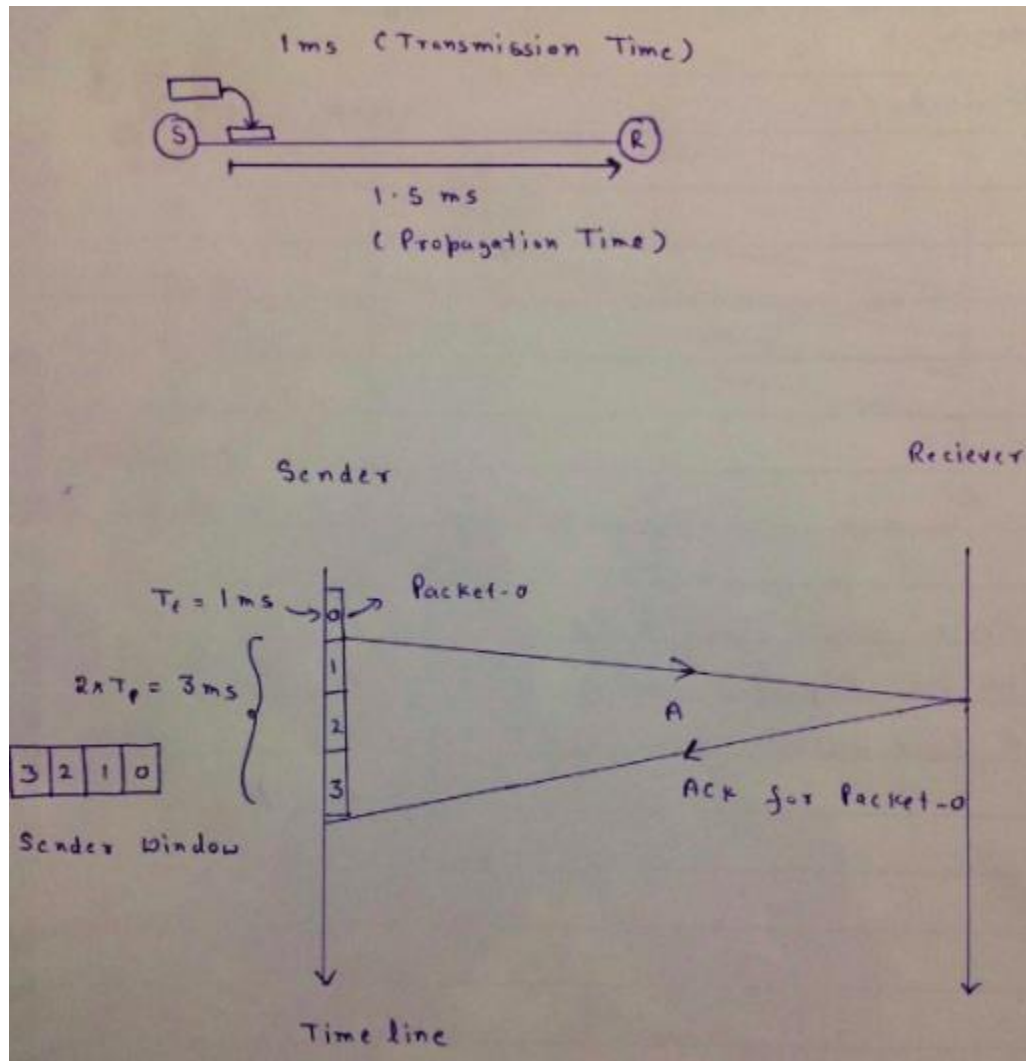 1ms (Transmission Time)
S
R
1.5 ms
(Propagation Time)
Sender
Reciever
Tt = 1ms
0
Packet-0
1
2xTp = 3ms
2
A
3 2 1 0
3
ACK for Packet-0
Sender Window
Time line